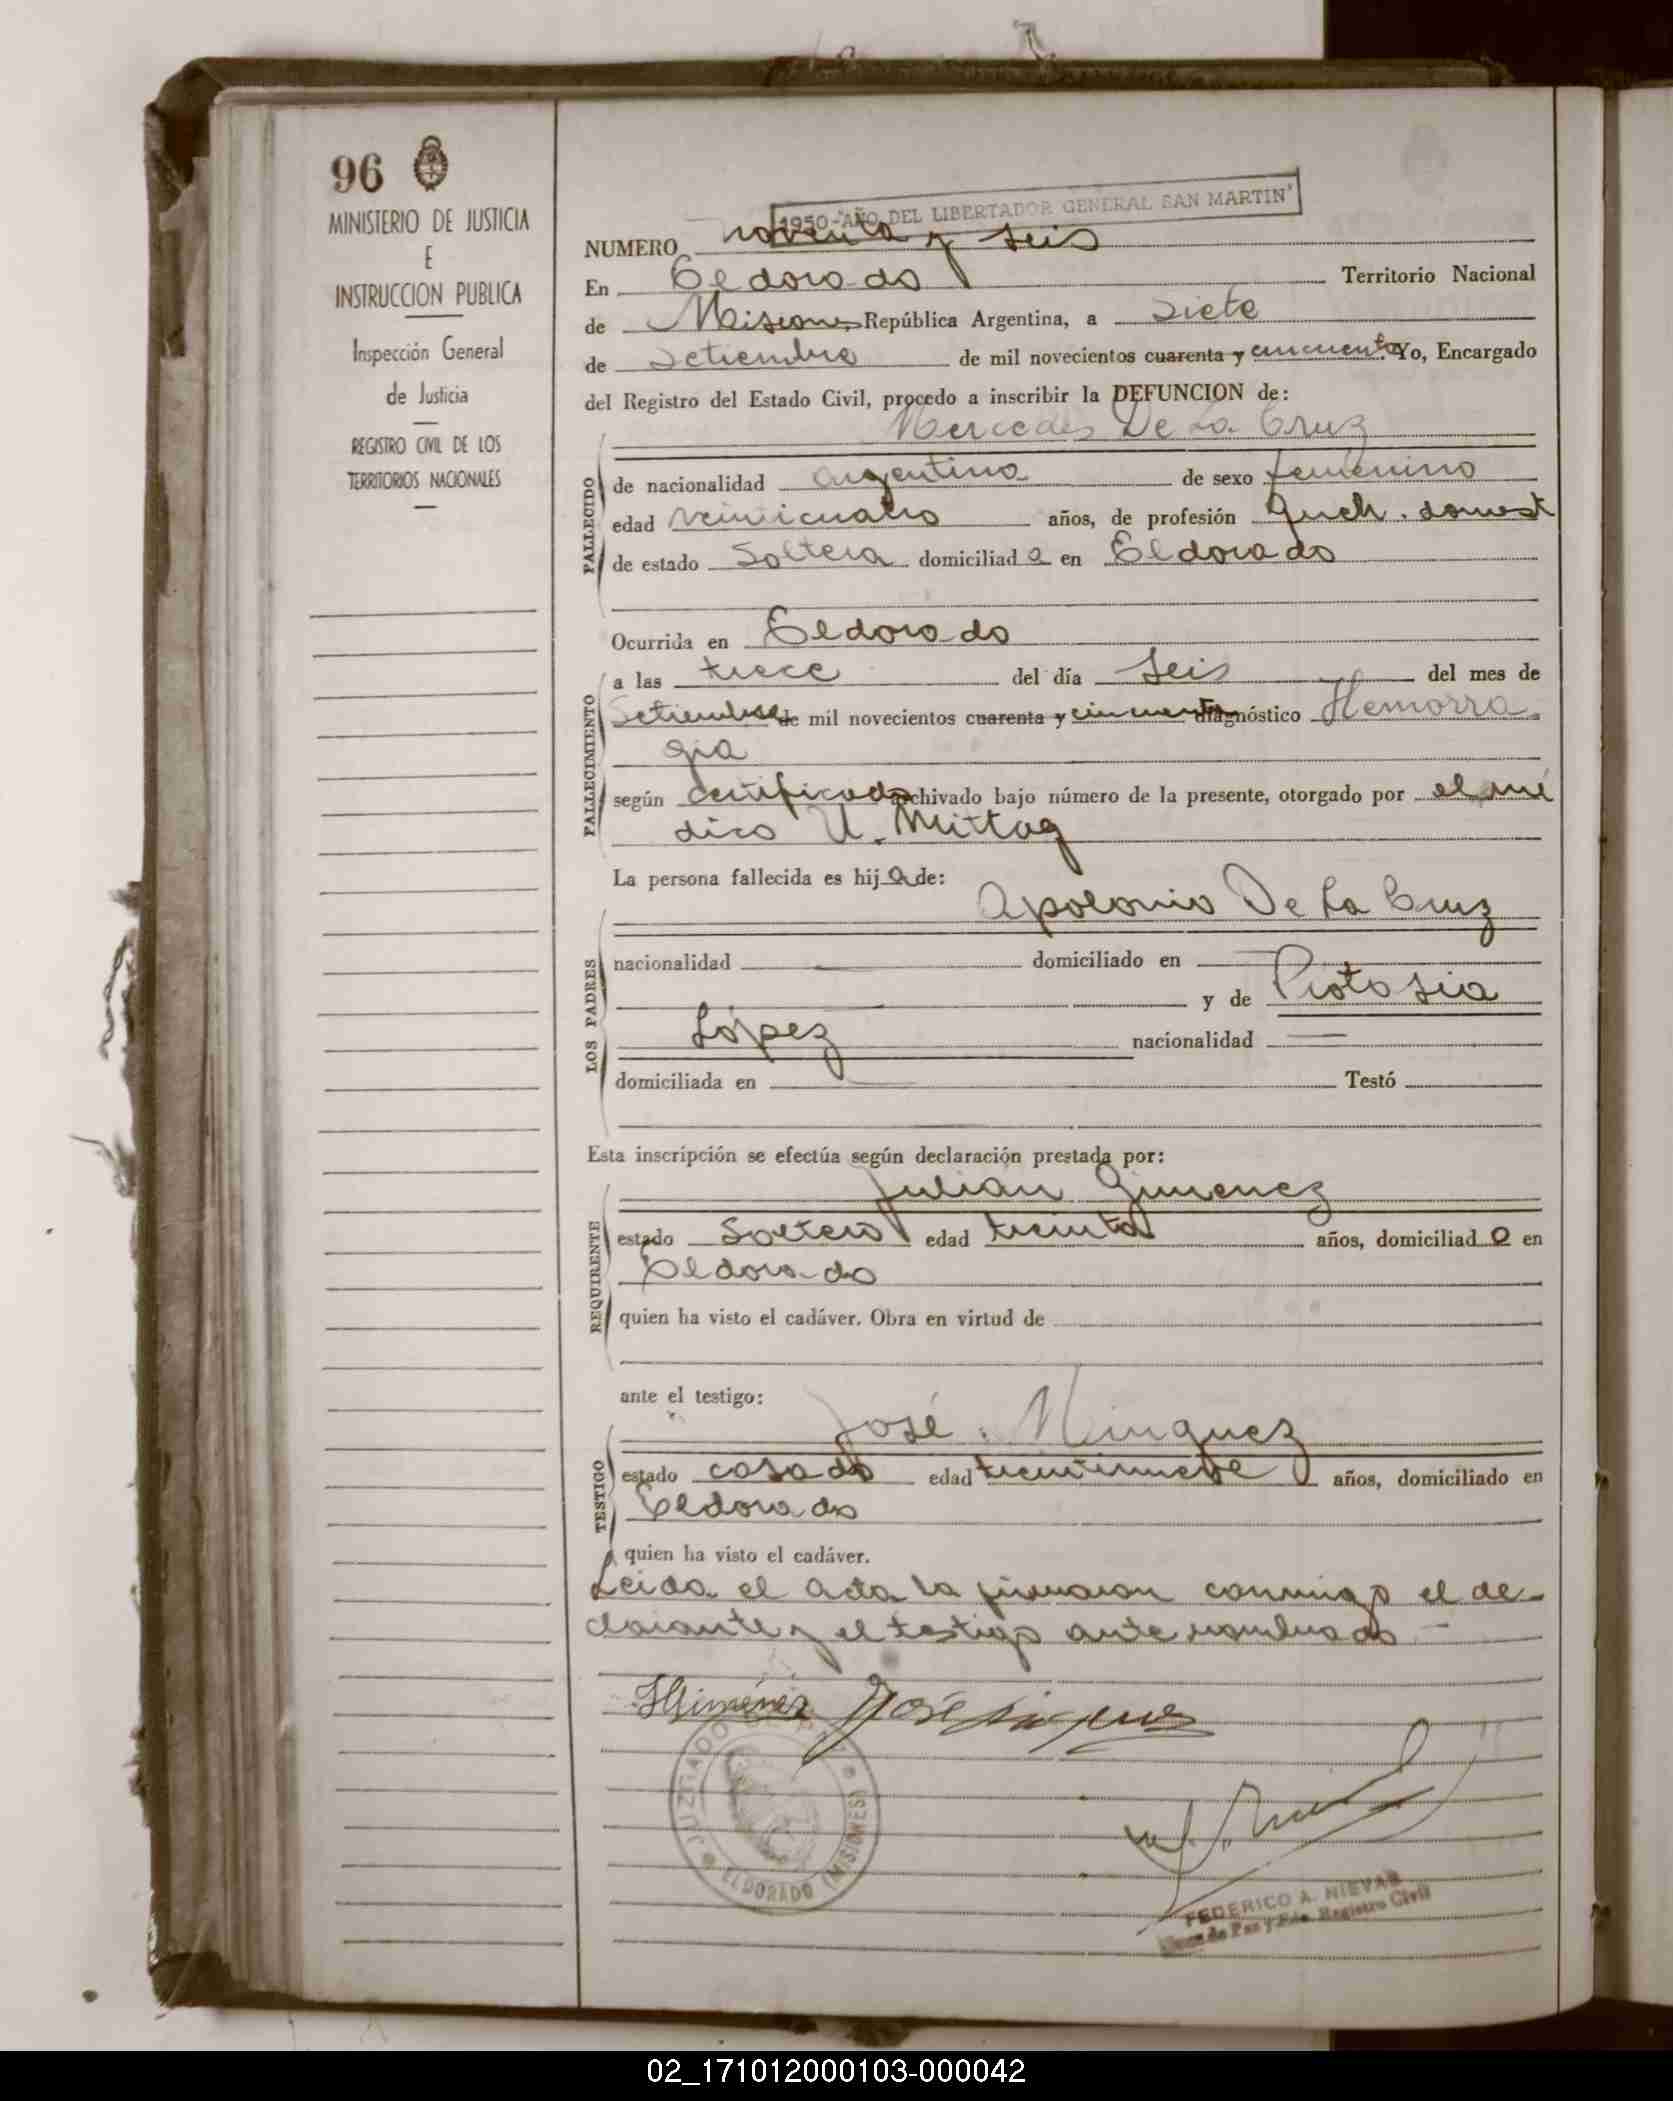 96
MINISTERIO DE JUSTICIA
E
INSTRUCCION PUBLICA
Inspección General
de Justicia
REGISTRO CIVIL DE LOS
TERRITORIOS NACIONALES
1950-"AÑO DEL LIBERTADOR GENERAL SAN MARTIN"
NUMERO noventa y seis
En Eldorado Territorio Nacional
de Misiones República Argentina, a siete
de setiembre de mil novecientos cuarenta y cincuenta Yo, Encargado
del Registro del Estado Civil, procedo a inscribir la DEFUNCION de:
Mercedes De La Cruz
FALLECIDO
de nacionalidad argentina de sexo femenino
edad veinticuatro años, de profesión queh. domest
de estado Soltera domiciliad a en Eldorado
Ocurrida en Eldorado
FALLECIMIENTO
a las trece del día seis del mes de
Setiembre de mil novecientos cuarenta y cincuenta diagnóstico Hemorra
gia
según certificado archivado bajo número de la presente, otorgado por el mé
dico U. Mittag
La persona fallecida es hij a de:
Apolonio De La Cruz
LOS PADRES
nacionalidad domiciliado en
y de Protasia
López nacionalidad
domiciliada en Testó
Esta inscripción se efectúa según declaración prestada por:
Julián Gimenez
REQUIRENTE
estado Soltero edad treinta años, domiciliad o en
Eldorado
quien ha visto el cadáver. Obra en virtud de
ante el testigo:
José Minguez
TESTIGO
estado casado edad treintinueve años, domiciliado en
Eldorado
quien ha visto el cadáver.
Leida el acta la firmaron conmigo el de-
clarante y el testigo ante nombrado
Giménez José
JUZGADO DE PAZ
ELDORADO (MISIONES)
FEDERICO A. NIEVAS
Juez de Paz y Enc. Registro Civil
02_171012000103-000042